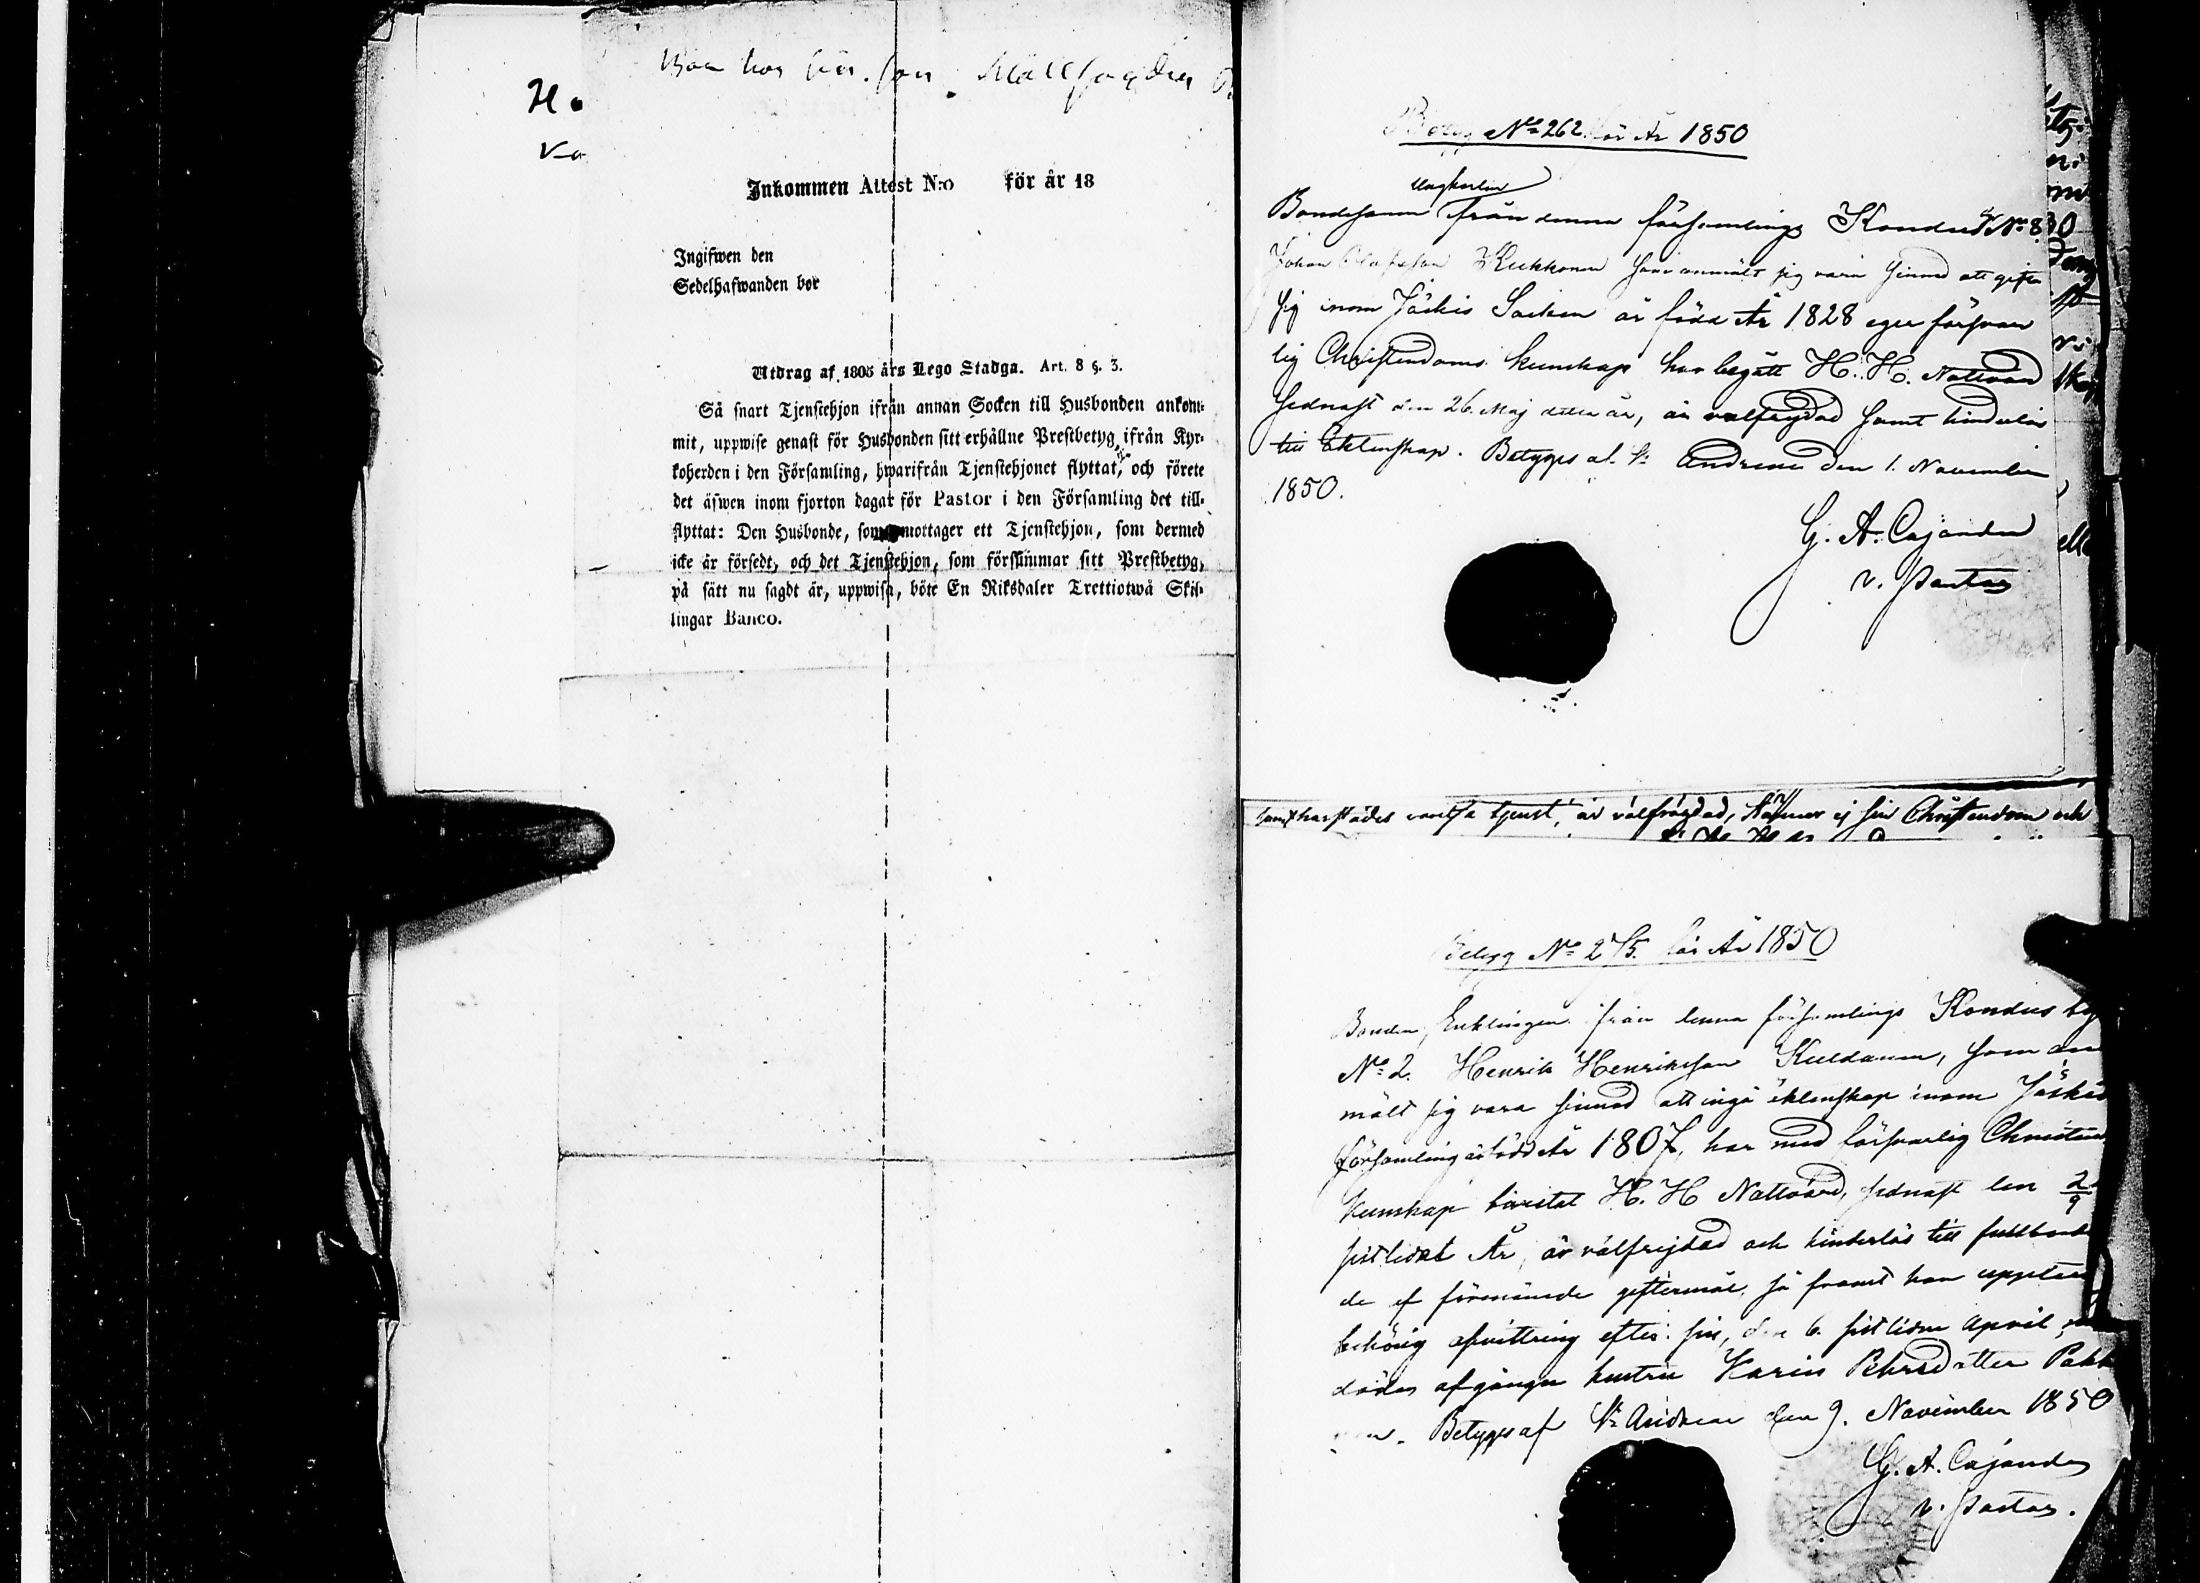 Bor hos sin son
H
Inkommen Attest N:o för år 18
Ingifwen den
Sedelhafwanden bor
Utdrag af 1805 års Lego Stadga. Art. 8 §. 3.
Så snart Tjenstehjon ifrån annan Socken till Husbonden ankom-
mit, uppwise genast för Husbonden sitt erhållne Prestbetyg, ifrån Kyr-
koherden i den Församling, hwarifrån Tjenstehjonet flyttat, och förete
det äfwen inom fjorton dagar för Pastor i den Församling det till-
flyttat: Den Husbonde, som mottager ett Tjenstehjon, som dermed
icke är försedt, och det Tjenstehjon, som försummar sitt Prestbetyg,
på sätt nu sagdt är, uppwisa, böte En Riksdaler Trettiotwå Skil-
lingar Banco.
Betyg No 262 för År 1850
Ungkarlen
Bondesonen från denna församlings Kondus No 8
Johan Olofsson Kukkonen som anmält sig vara sinnad att gifta
sig inom Jäskis Socken är född År 1828 eger försvar
lig Christendoms kunskap har begått H. H. Nattvard
sednast den 26. Maj detta år, är välfrejdad samt hinderlös
till Ektenskap. Betyges af St Andreae den 1. November
1850.
G. A. Cajander
v. Pastor
samt härstädes varit i tjenst, är välfrägdad, känner ej sin Christendom och
Betyg No 275. för År 1850
Bonden, Enklingen från denna församlings Kondus by
No 2. Henrik Henriksson Kuldanen, som an
mält sig vara sinnad att ingå äktenskap inom Jäskis
församling är född År 1807, har med försvarlig Christen
kunskap bevistat H. H Nattvard, sednast den 2/9
sistlidet År, är välfrejdad och hinderlös till fullbord
de af förenämde giftermål, så framt han uppte
behörig afvittring efter sin, den 6. sistlidne April
döden afgångne hustru Karin Pehrsdotter Pakk
nen. Betyges af St Andreae den 9. November 1850
G. A. Cajander
v. Pastor.